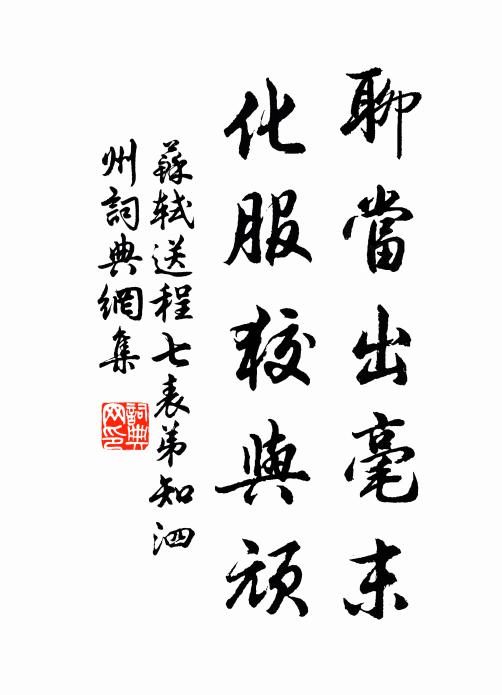 聊當出毫末
化服狡與頑
蘇軾送程七表弟知泗
州詞典網集
詞典網印